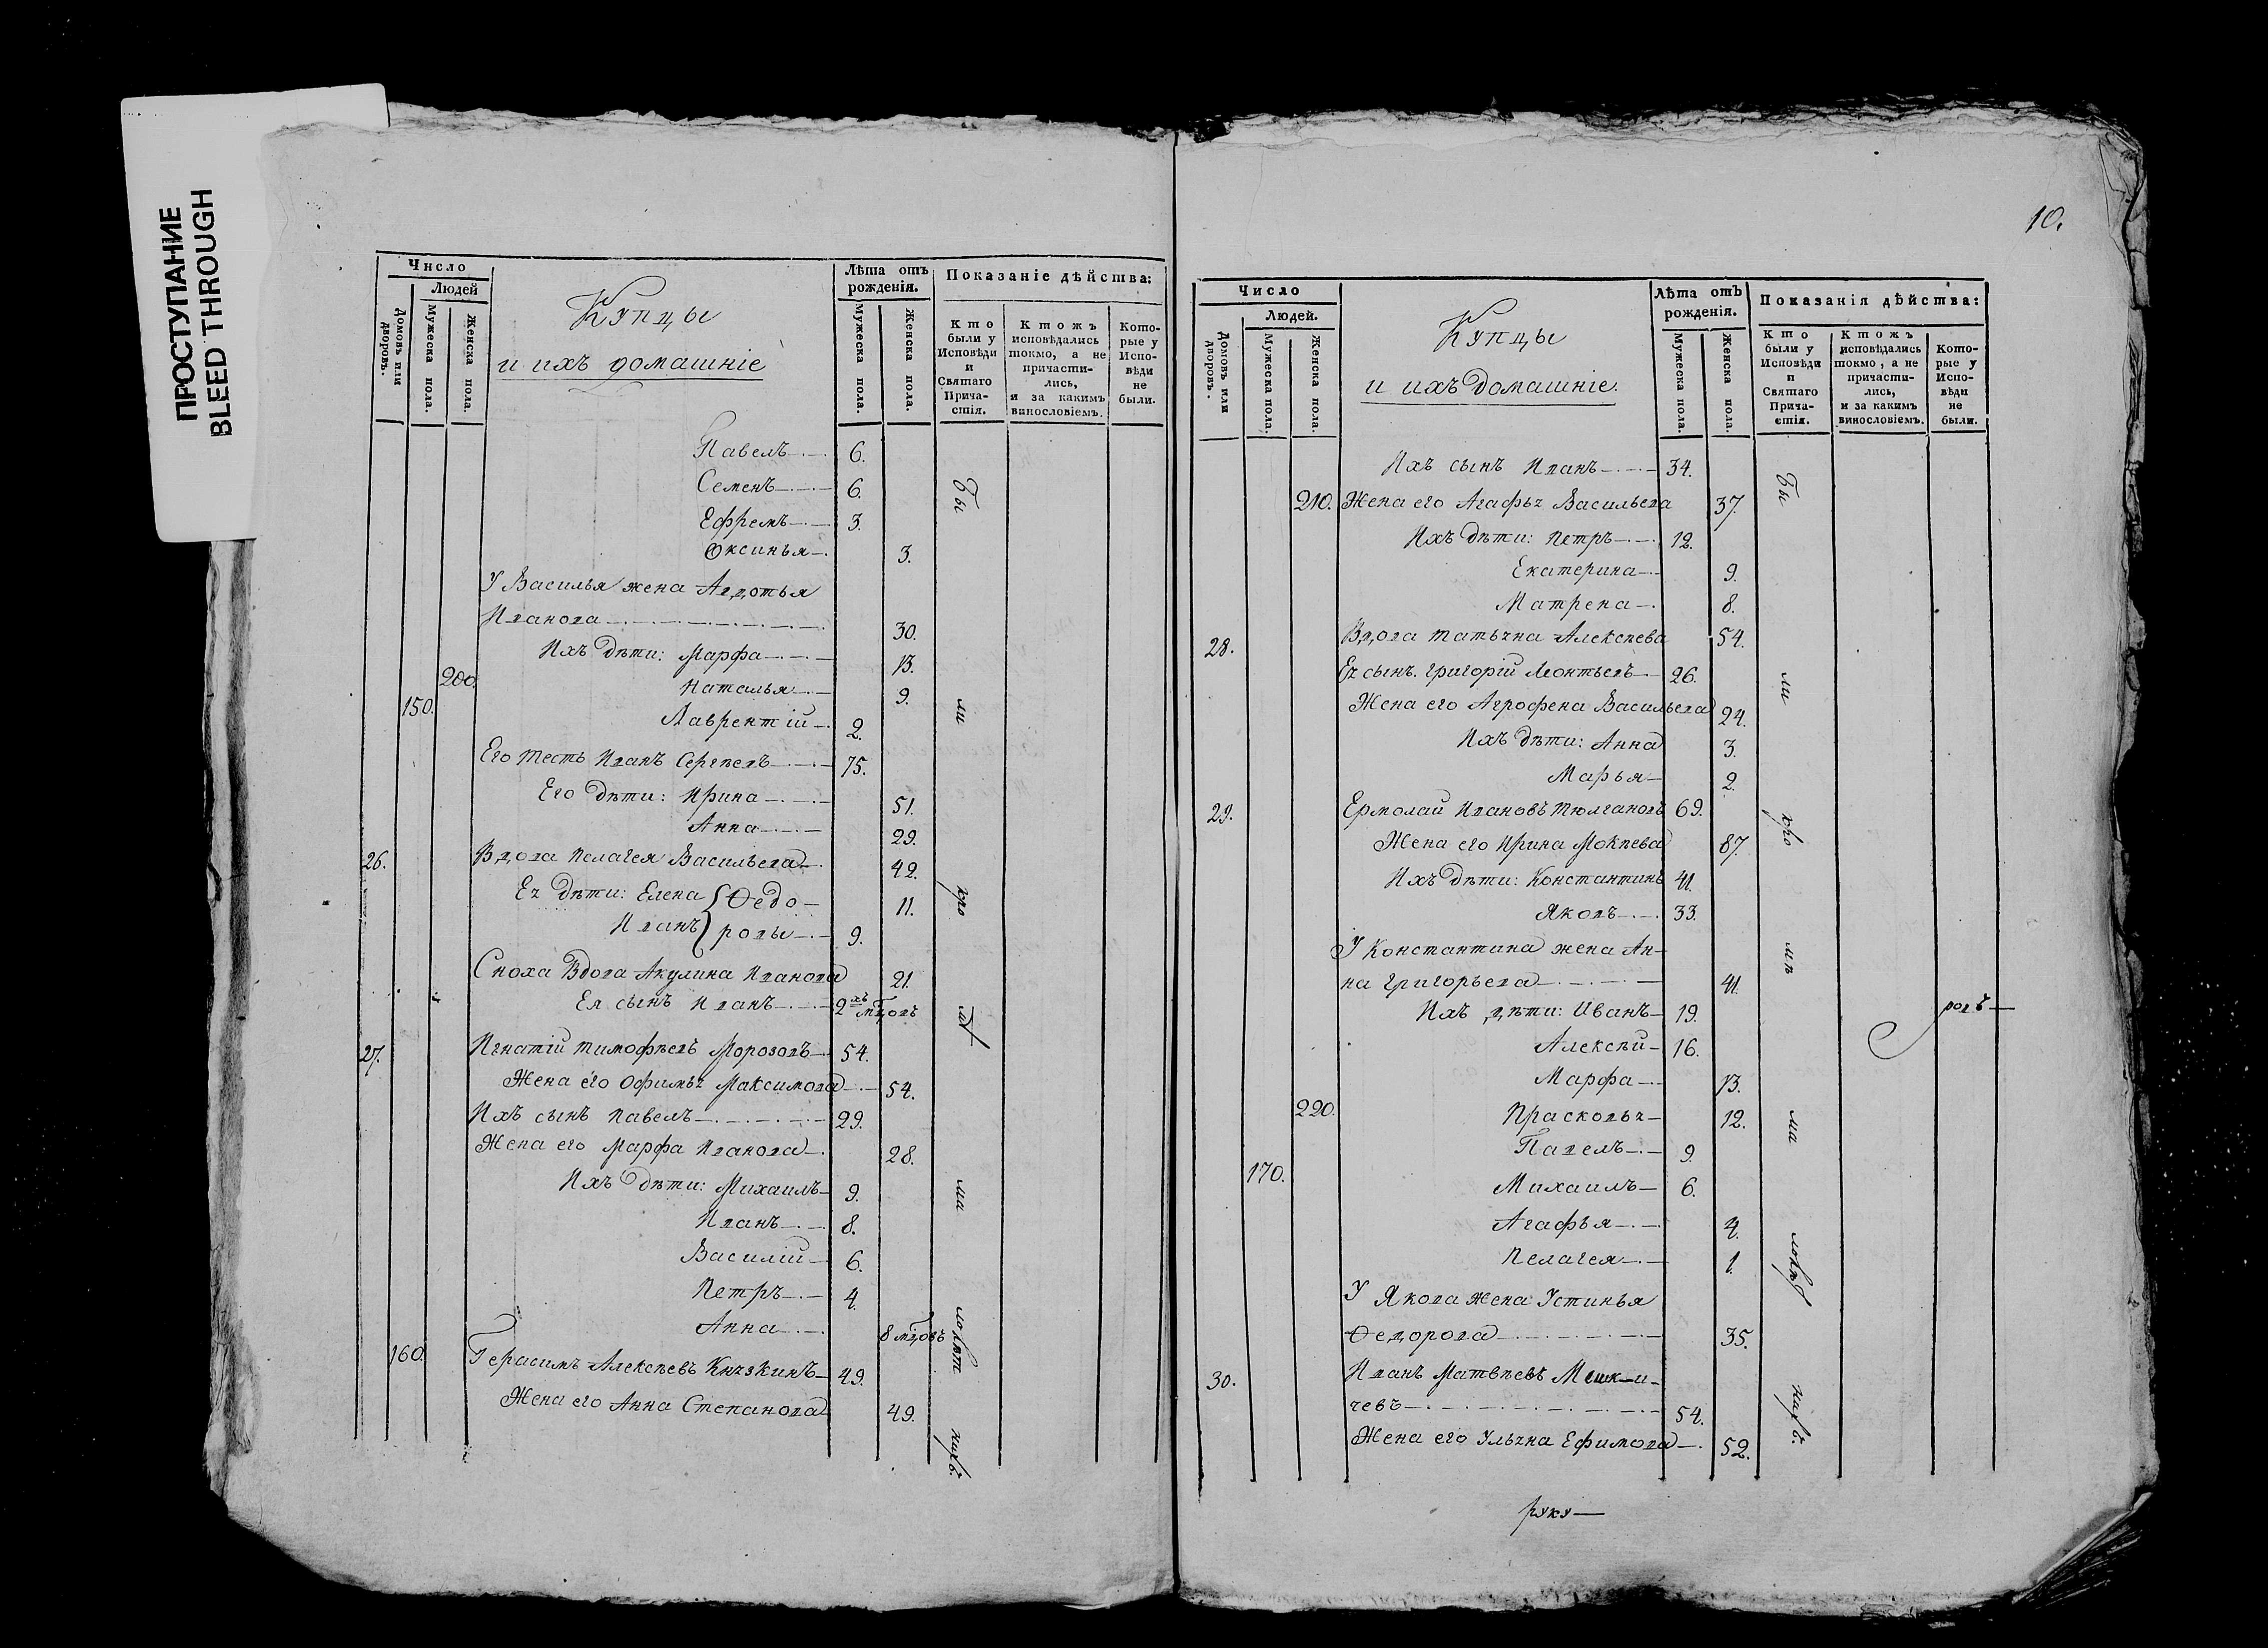 ПРОСТУПАНИЕ
BLEED THROUGH
Число
Людей
Домовъ или дворовъ.
Мужеска пола.
Женска пола.
Купцы
и ихъ домашніе
Лѣта отъ рожденія.
Мужеска пола.
Женска пола.
Показаніе дѣйства:
Кто были у Исповѣди и Святаго Прича-стія.
Ктожъ исповѣдались токмо, а не причасти-лись, и за какимъ винословіемъ.
Кото-рые у Испо-вѣди не были.
Павелъ 6.
Семенъ 6.
Ефремъ 3.
Оксинья 3.
У Василья жена Авдотья
Иванова 30.
Ихъ дѣти: Марфа 13.
200. Наталья 9.
150. Лаврентій 2.
Его тесть Иванъ Сергѣевъ 75.
Его дѣти: Ирина 51.
Анна 29.
26. Вдова Пелагея Васильева 42.
Ея дѣти: Елена Ѳедо- 11.
Иванъ ровы 9.
Сноха вдова Акулина Иванова 21.
Ея сынъ Иванъ 2хъ мцовъ
27. Игнатій Тимофѣевъ Морозовъ 54.
Жена его Офимья Максимова 54.
Ихъ сынъ Павелъ 29.
Жена его Марфа Иванова 28.
Ихъ дѣти: Михаилъ 9.
Иванъ 8.
Василій 6.
Петръ 4.
Анна 8 мцовъ
160. Герасимъ Алексѣевъ Князкинъ 49.
Жена его Анна Степанова 49.
Бы
ли
кро
ма
нихъ.
10.
Число
Людей.
Домовъ или дворовъ.
Мужеска пола.
Женска пола.
Купцы
и ихъ домашніе.
Лѣта отъ рожденія.
Мужеска пола.
Женска пола.
Показанія дѣйства:
Кто были у Исповѣди и Святаго Прича-стія.
Ктожъ исповѣдались токмо, а не причасти-лись, и за какимъ винословіемъ.
Кото-рые у Испо-вѣди не были.
Ихъ сынъ Иванъ 34.
210. Жена его Агафья Васильева 37.
Ихъ дѣти: Петръ 12.
Екатерина 9.
Матрена 8.
28. Вдова Татьяна Алексѣева 54.
Ея сынъ Григорій Леонтьевъ 26.
Жена его Агрофена Васильева 24.
Ихъ дѣти: Анна 3.
Марья 2.
29. Ермолай Ивановъ 69.
Жена его Ирина Мокѣева 87.
Ихъ дѣти: Константинъ 41.
Яковъ 33.
У Константина жена Ан-
на Григорьева 41.
Ихъ дѣти: Иванъ 19.
Алексѣй 16.
Марфа 13.
220. Прасковья 12.
Павелъ 9.
170. Михаилъ 6.
Агафья 4.
Пелагея 1.
У Якова жена Устинья
Ѳедорова 35.
30. Иванъ Матвѣевъ
чевъ 54.
Жена его Ульяна Ефимова 52.
Бы
ли
кро
мѣ
ма
нихъ.
ровъ
руку